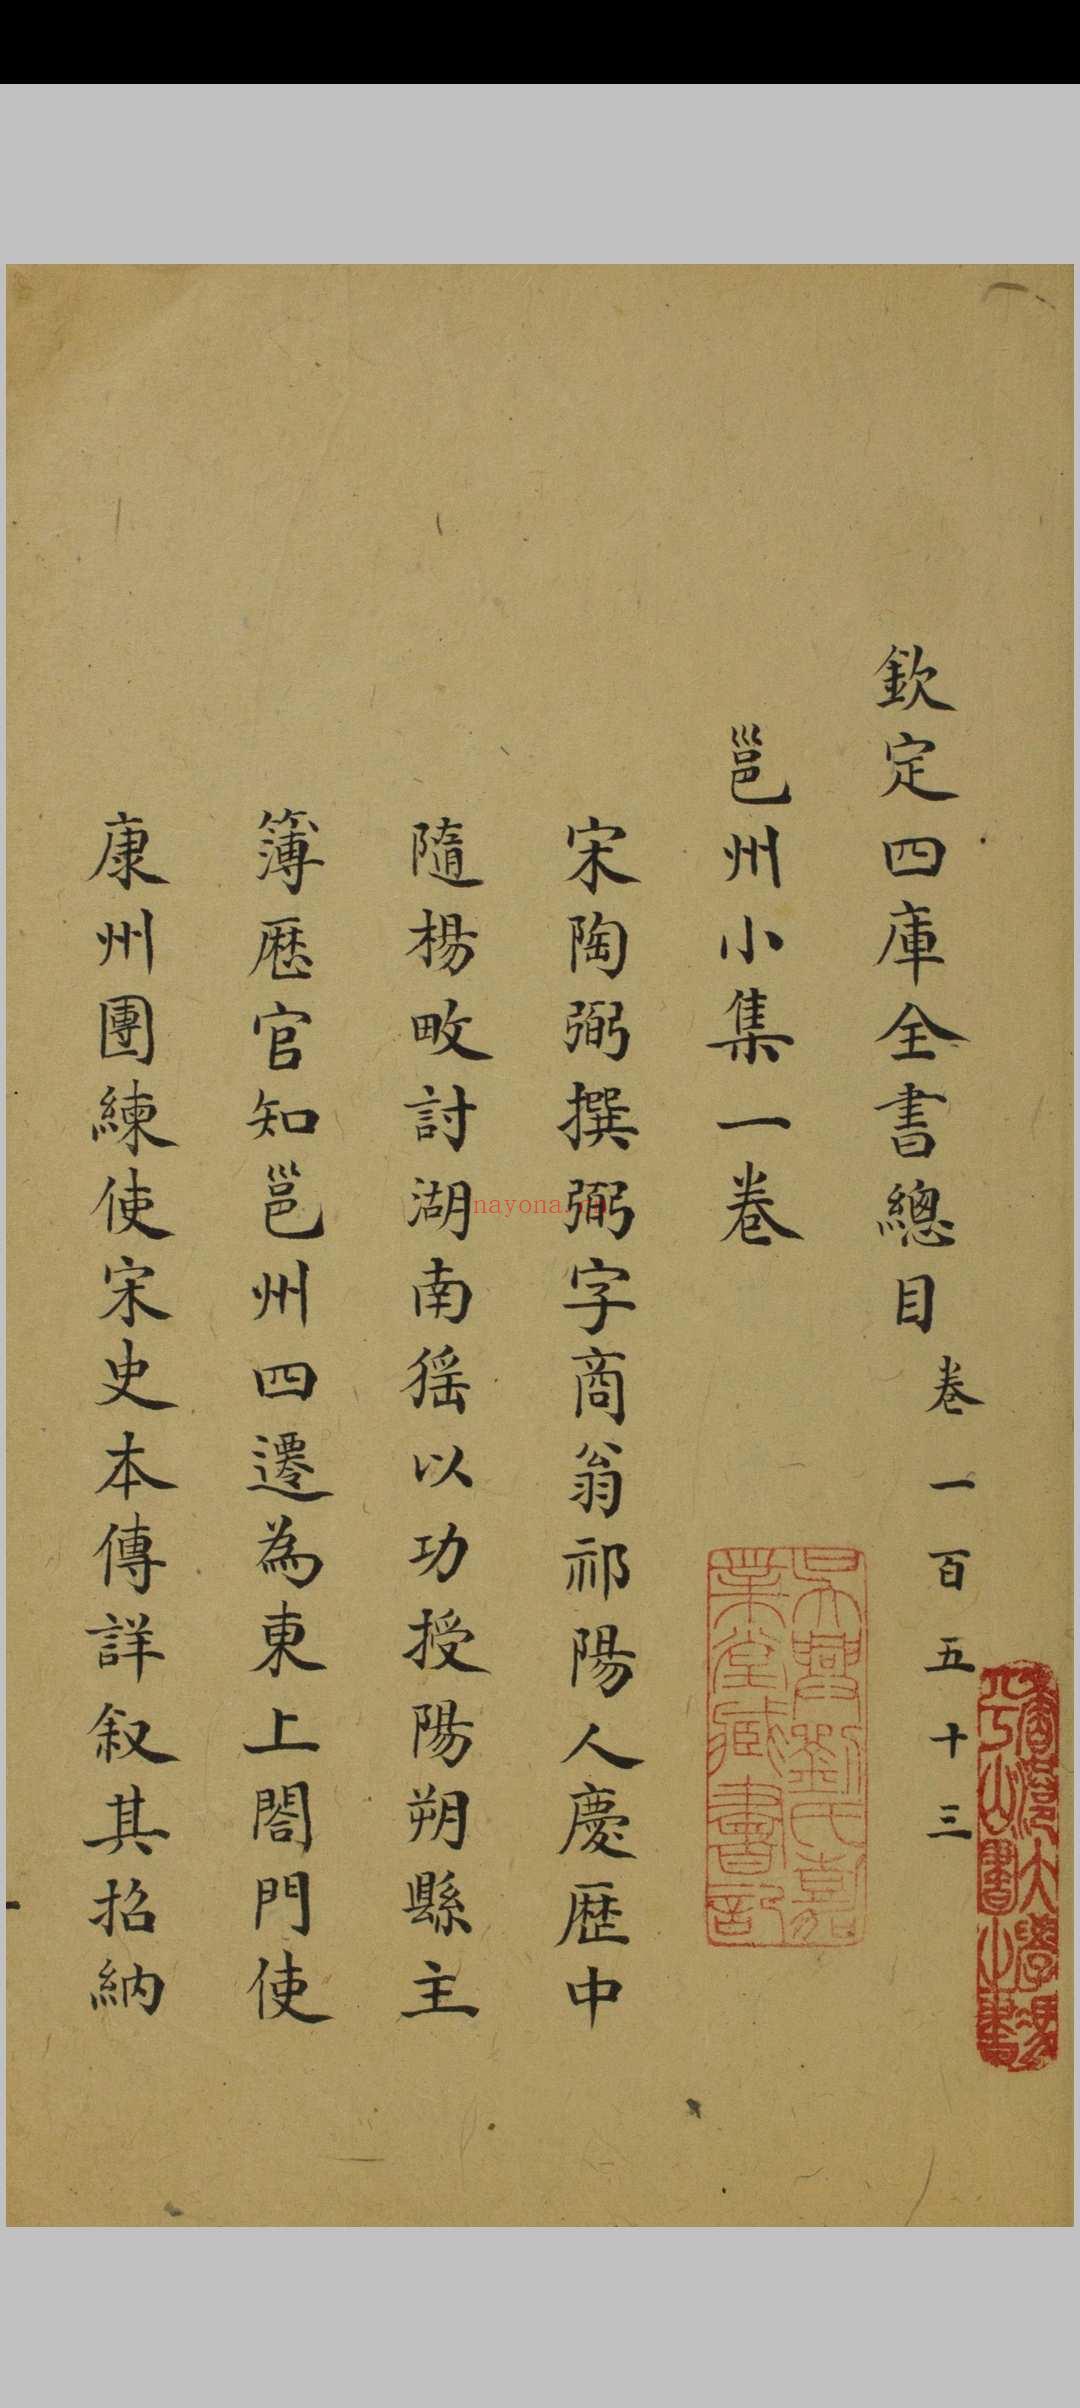 欽定四庫全書總目 卷一百五十三
邕州小集一卷
宋陶弼撰弼字商翁祁陽人慶歴中
隨楊畋討湖南猺以功授陽朔縣主
簿歴官知邕州四遷為東上閤門使
康州團練使宋史本傳詳叙其招納
吳興劉氏嘉
業堂藏書記
nayona.cn